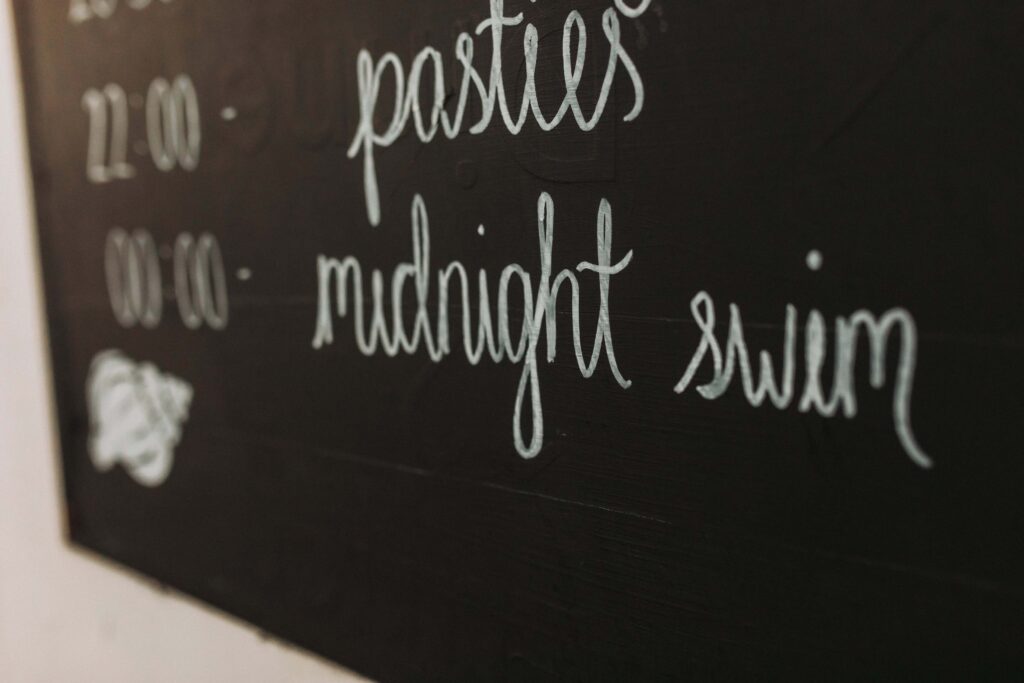 22:00 - pasties
00:00 - midnight swim